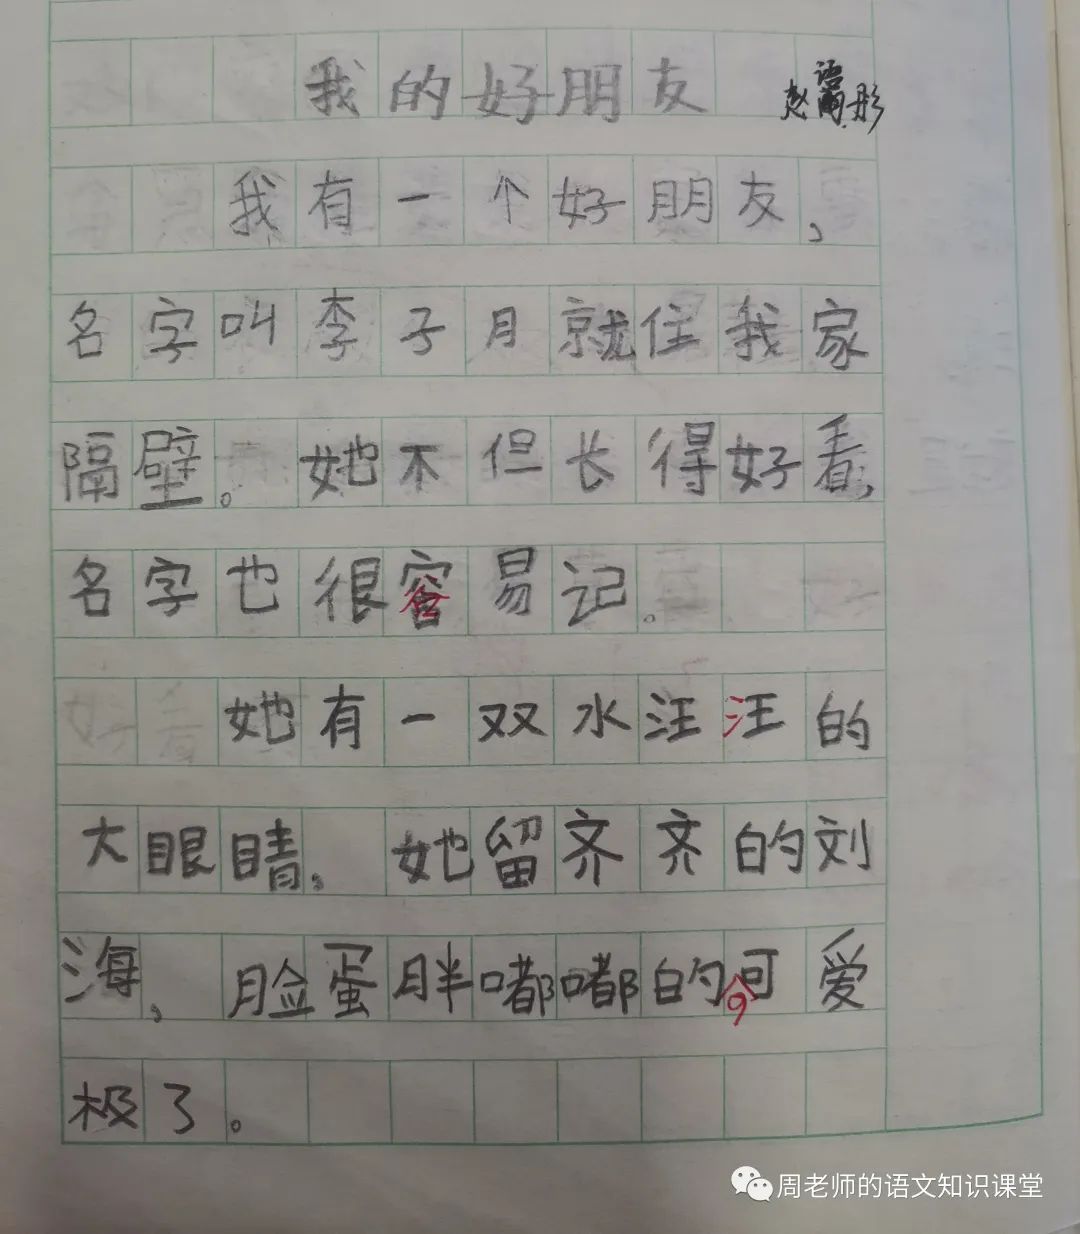 我的好朋友
赵语彤
我有一个好朋友，
名字叫李子月就住我家
隔壁。她不但长得好看，
名字也很容易记。
她有一双水汪汪的
大眼睛，她留齐齐的刘
海，脸蛋胖嘟嘟的，可爱
极了。
周老师的语文知识课堂